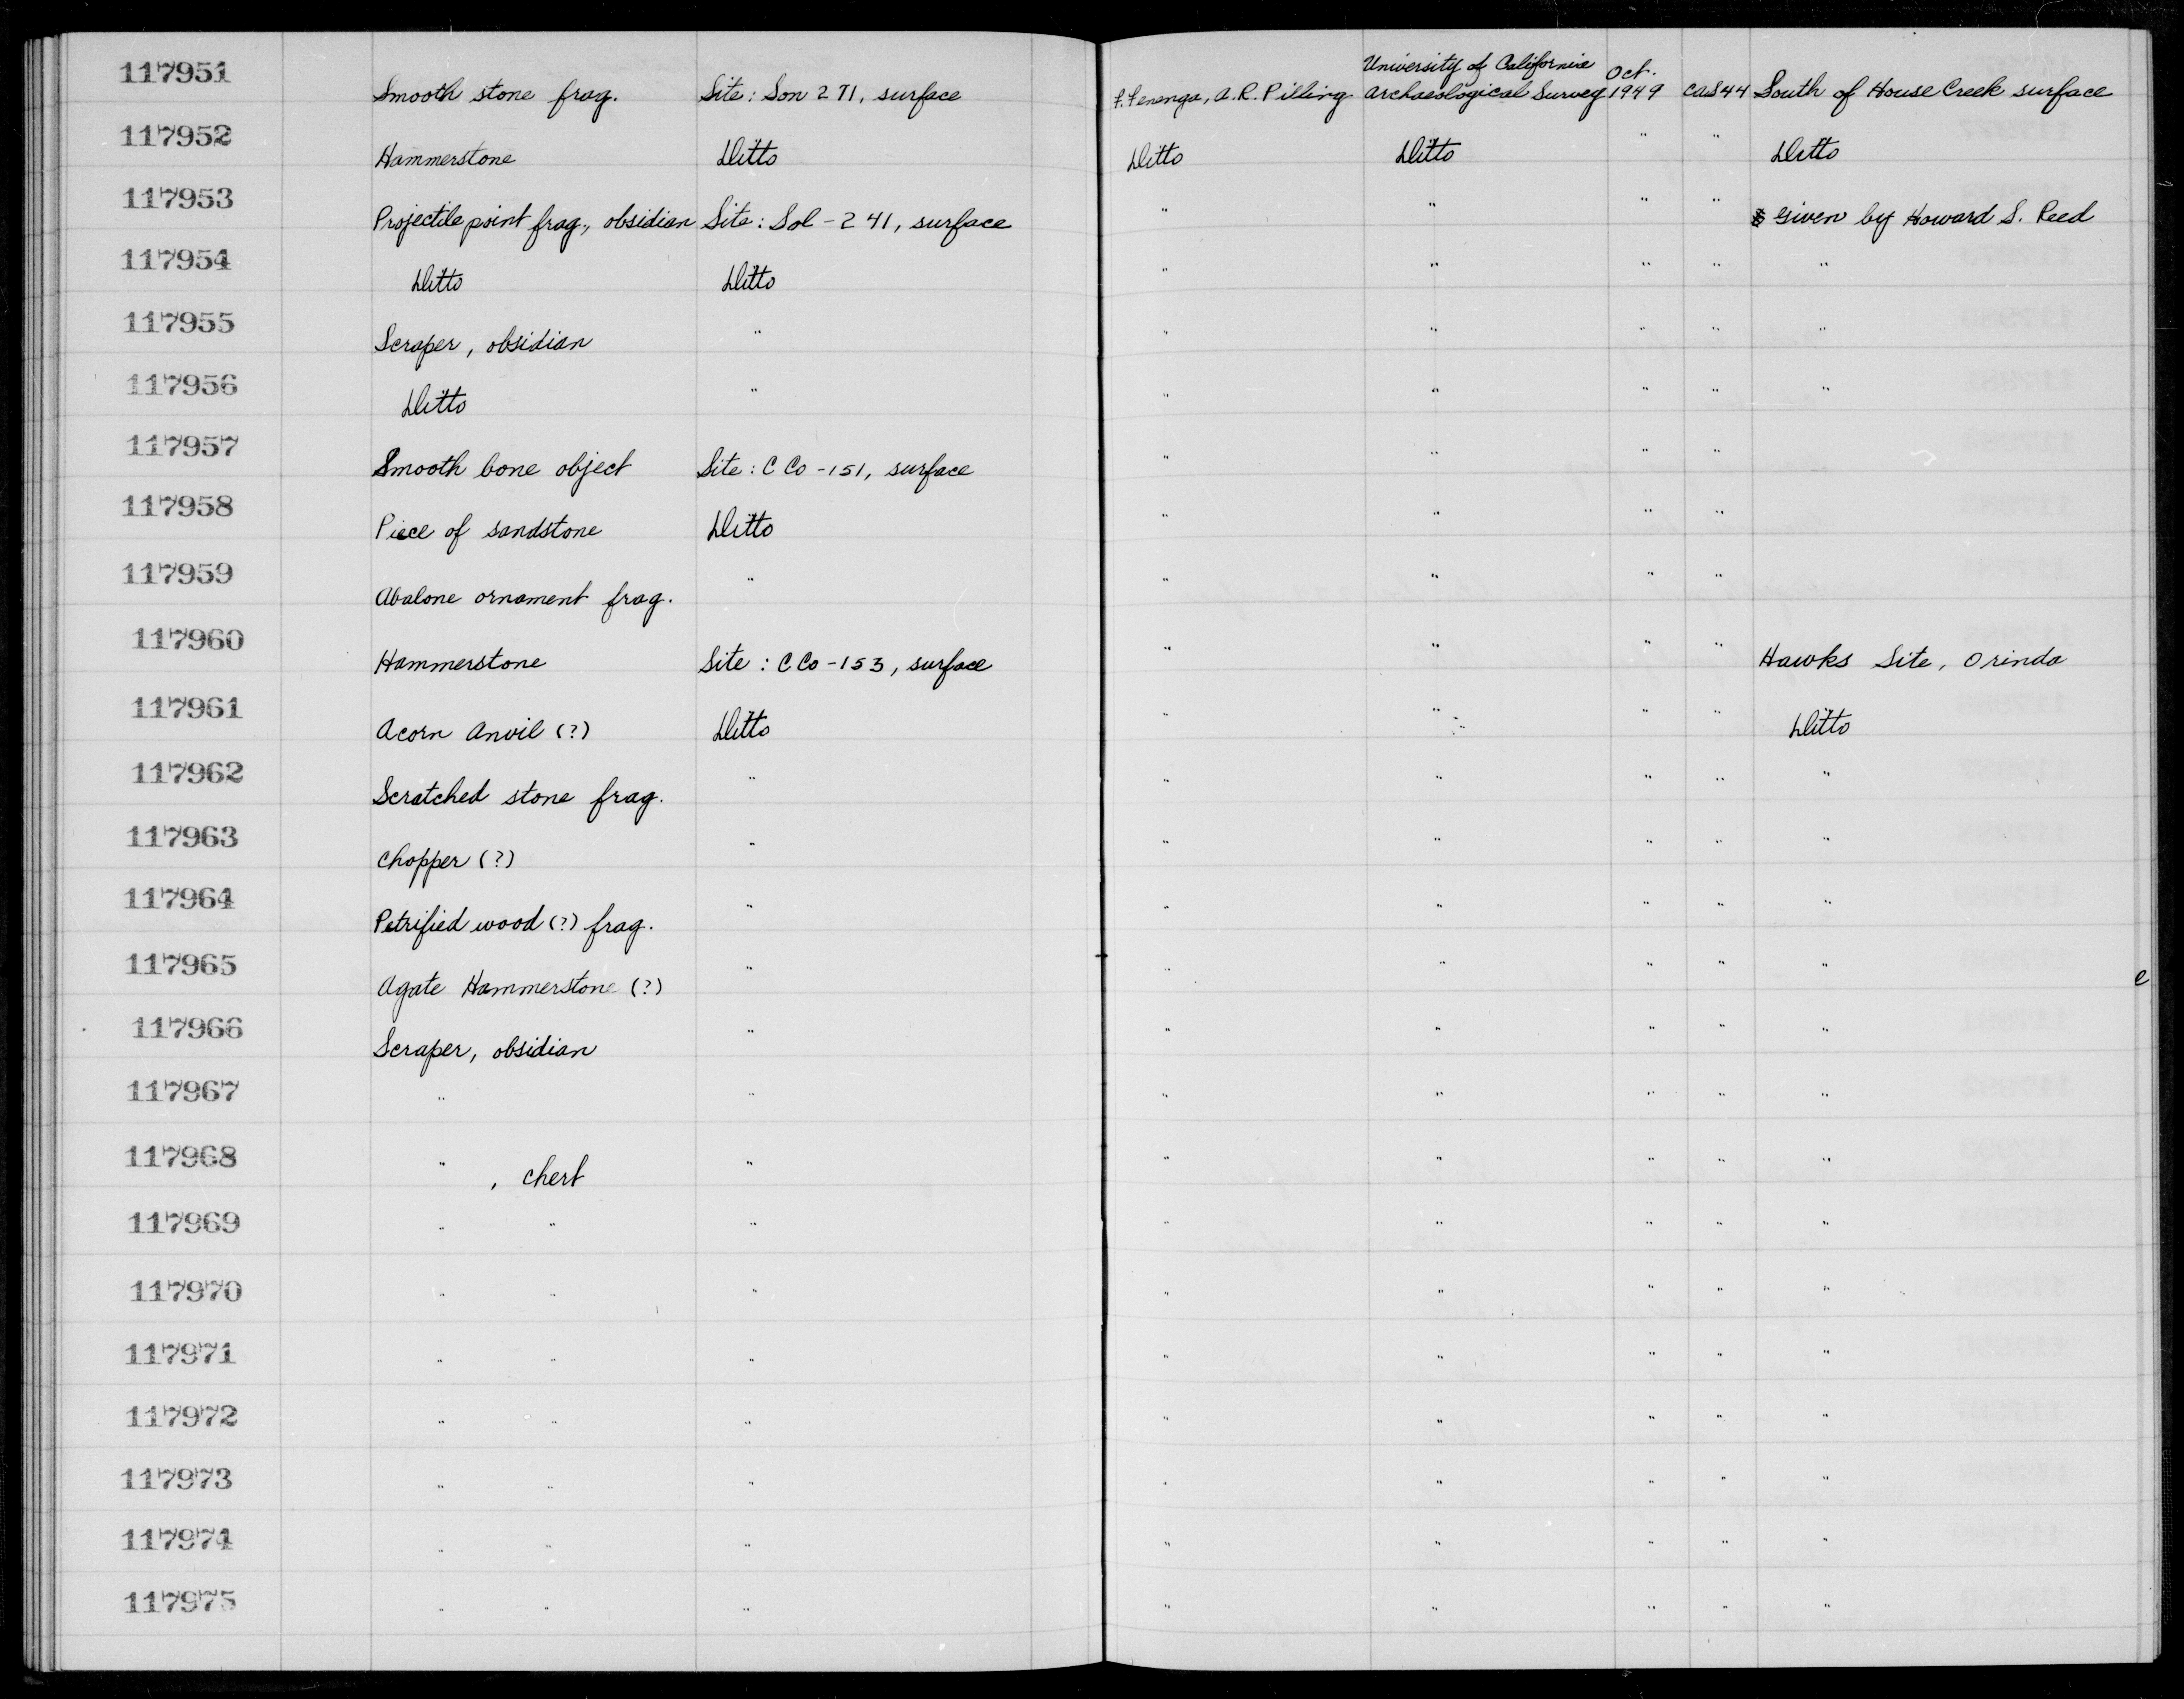 117951 Smooth stone frag. Site: Son 271, surface F. Fenenga, A.R. Pilling University of California Archaeological Survey Oct. 1949 CAS44 South of House Creek surface
117952 Hammerstone Ditto Ditto Ditto " " Ditto
117953 Projectile point frag., obsidian Site: Sol-241, surface " " " " Given by Howard S. Reed
117954 Ditto Ditto " " " " "
117955 Scraper, obsidian " " " " " "
117956 Ditto " " " " " "
117957 Smooth bone object Site: C Co-151, surface " " " "
117958 Piece of sandstone Ditto " " " "
117959 Abalone ornament frag. " " " " "
117960 Hammerstone Site: C Co-153, surface " " " " Hawks Site, Orinda
117961 Acorn Anvil (?) Ditto " " " " Ditto
117962 Scratched stone frag. " " " " " "
117963 Chopper (?) " " " " " "
117964 Petrified wood (?) frag. " " " " " "
117965 Agate Hammerstone (?) " " " " " "
e
117966 Scraper, obsidian " " " " " "
117967 " " " " " " "
117968 " , chert " " " " " "
117969 " " " " " " " "
117970 " " " " " " " "
117971 " " " " " " " "
117972 " " " " " " " "
117973 " " " " " " " "
117974 " " " " " " " "
117975 " " " " " " " "